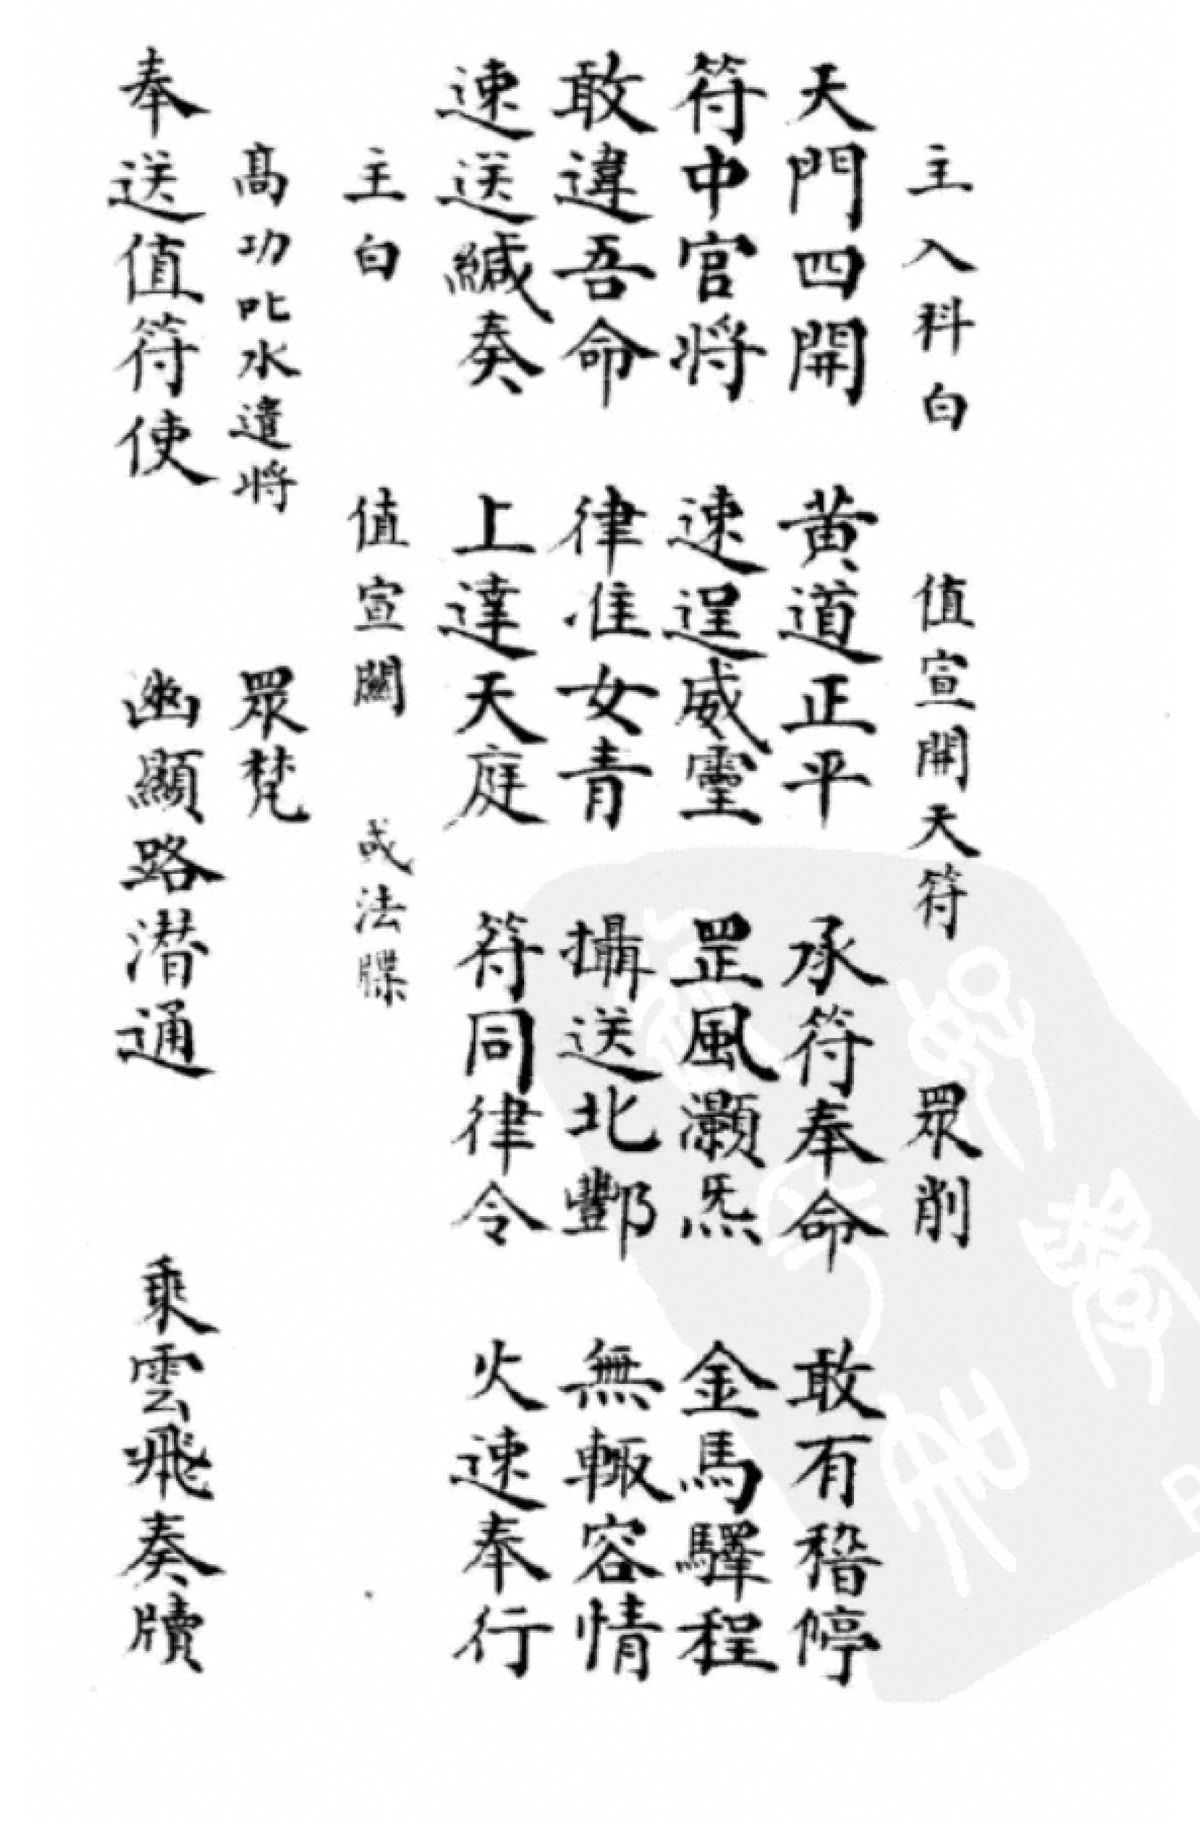 主入科白　值宣開天符　眾削
天門四開　黄道正平　承符奉命　敢有稽停
符中官将　速逞威靈　罡風灝炁　金馬驛程
敢違吾命　律准女青　攝送北酆　無輙容情
速送緘奏　上達天庭　符同律令　火速奉行
主白　值宣關　或法牒
髙功叱水遣將　眾梵
奉送值符使　幽顯路潛通　乘雲飛奏牘